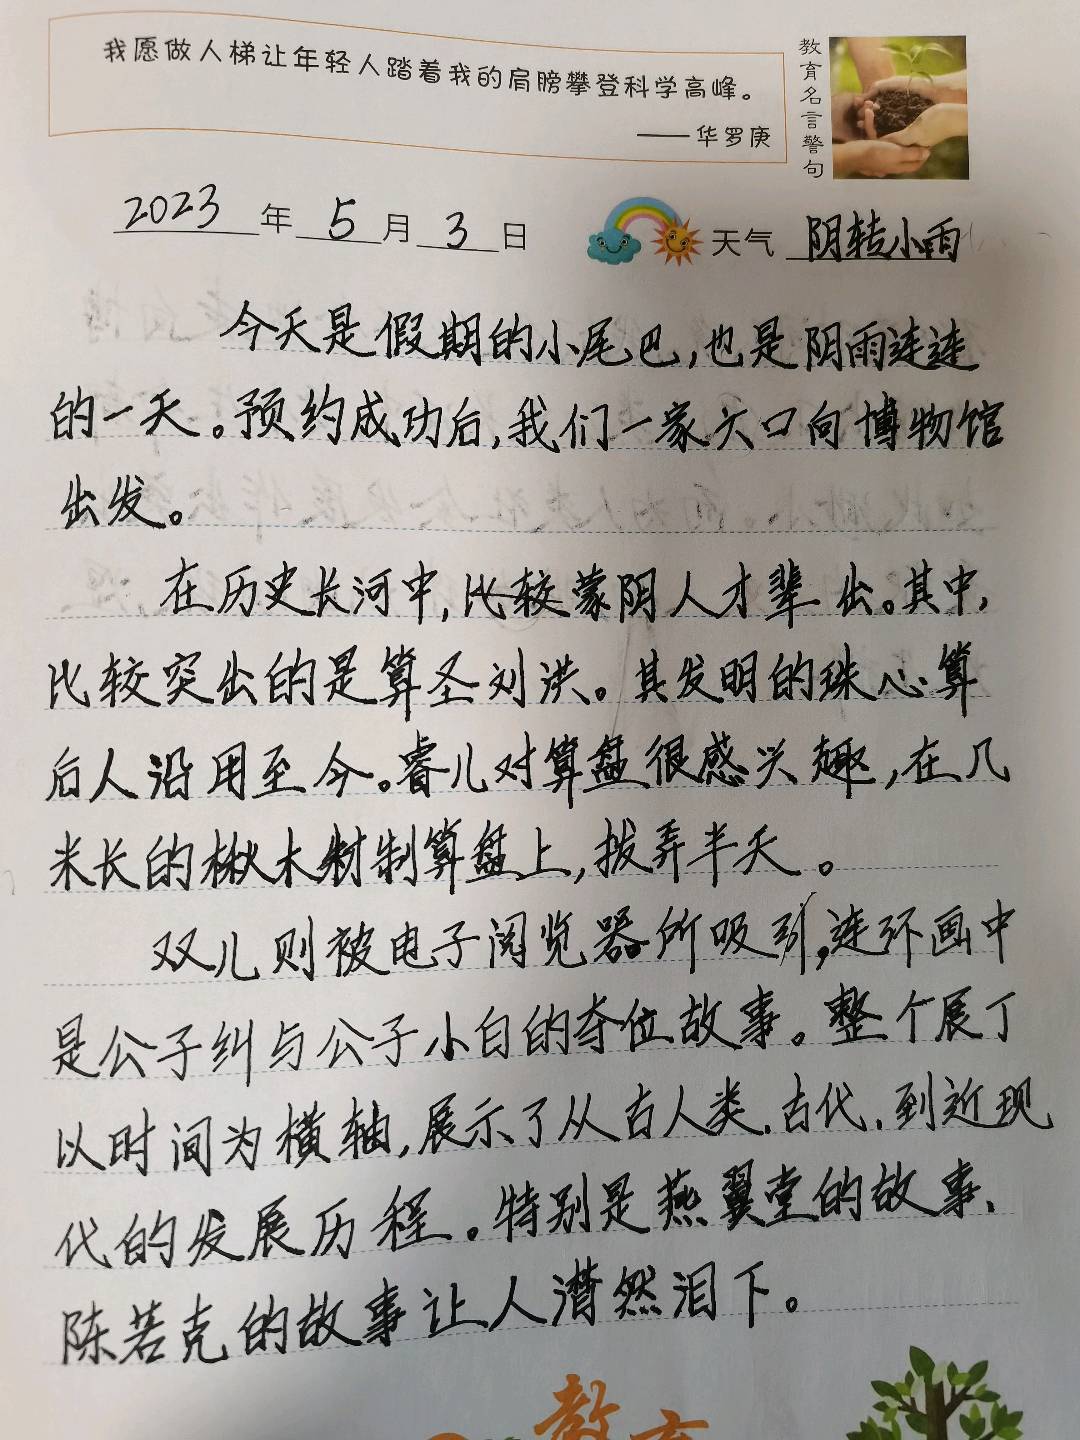 我愿做人梯让年轻人踏着我的肩膀攀登科学高峰。
——华罗庚
教育名言警句
2023年5月3日 天气 阴转小雨
今天是假期的小尾巴,也是阴雨连连
的一天。预约成功后,我们一家六口向博物馆
出发。
在历史长河中,比较蒙阴人才辈出。其中,
比较突出的是算圣刘洪。其发明的珠心算
后人沿用至今。睿儿对算盘很感兴趣,在几
米长的楸木材制算盘上,拨弄半天。
双儿则被电子阅览器所吸引,连环画中
是公子纠与公子小白的夺位故事。整个展厅
以时间为横轴,展示了从古人类.古代.到近现
代的发展历程。特别是燕翼堂的故事、
陈若克的故事让人潸然泪下。
教育